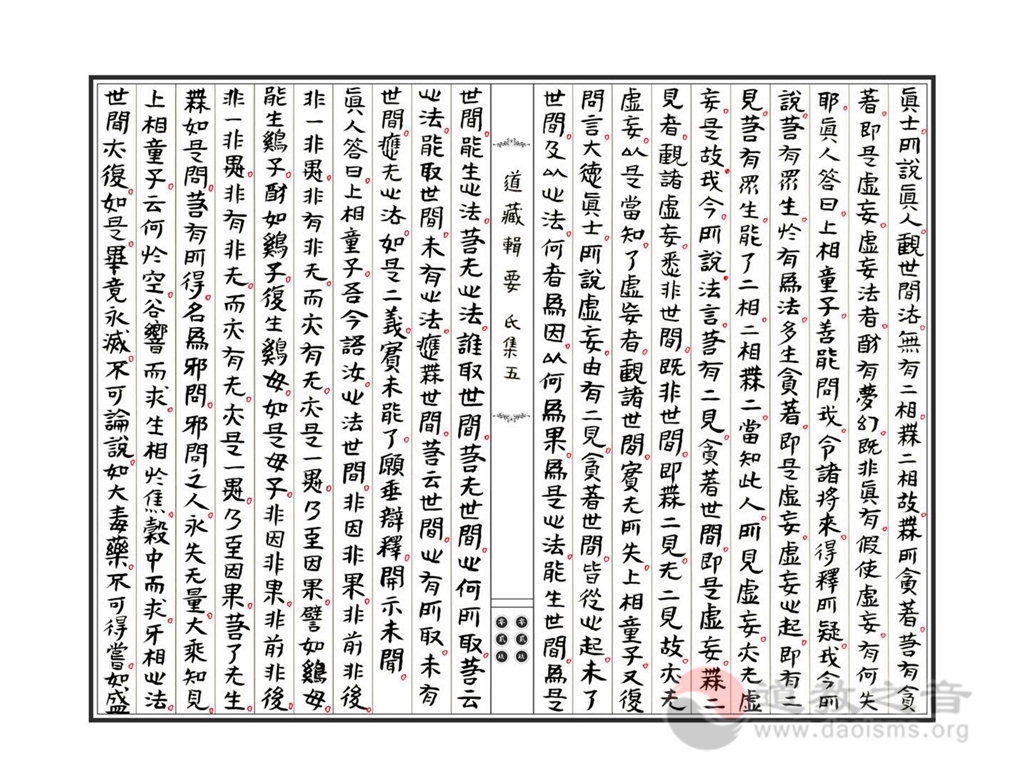 眞士所說眞人觀世間法無有二相無二相故無所貪著若有貪
著即是虛妄虛妄法者酧有夢幻既非眞有假使虛妄有何失
耶眞人答曰上相童子善能問我令諸將來得釋所疑我今所
說若有眾生於有爲法多生貪著即是虛妄虛妄心起即有二
見若有眾生能了二相二相無二當知此人所見虛妄亦无虛
妄是故我今所說法言若有二見貪著世間即是虛妄無二
見者觀諸虛妄悉非世間既非世間即無二見无二見故亦无
虛妄以是當知了虛妄者觀諸世間實无所失上相童子又復
問言大德眞士所說虛妄由有二見貪著世間皆從心起未了
世間及以心法何者爲因以何爲果爲是心法能生世間爲是
道藏輯要 氐集五
世間能生心法若无心法誰取世間若无世間心何所取若云
心法能取世間未有心法應無世間若云世間心有所取未有
世間應无心法如是二義實未能了願垂辯釋開示未聞
眞人答曰上相童子吾今語汝心法世間非因非果非前非後
非一非異非有非无而亦有无亦是一異乃至因果譬如鷄母
能生鷄子酧如鷄子復生鷄母如是母子非因非果非前非後
非一非異非有非无而亦有无亦是一異乃至因果若了无生
無如是問若有所得名爲邪問邪問之人永失无量大乘知見
上相童子云何於空谷響而求生相於焦穀中而求牙相心法
世間亦復如是畢竟永滅不可論說如大毒藥不可得嘗如盛
道教之音
www.daoisms.org